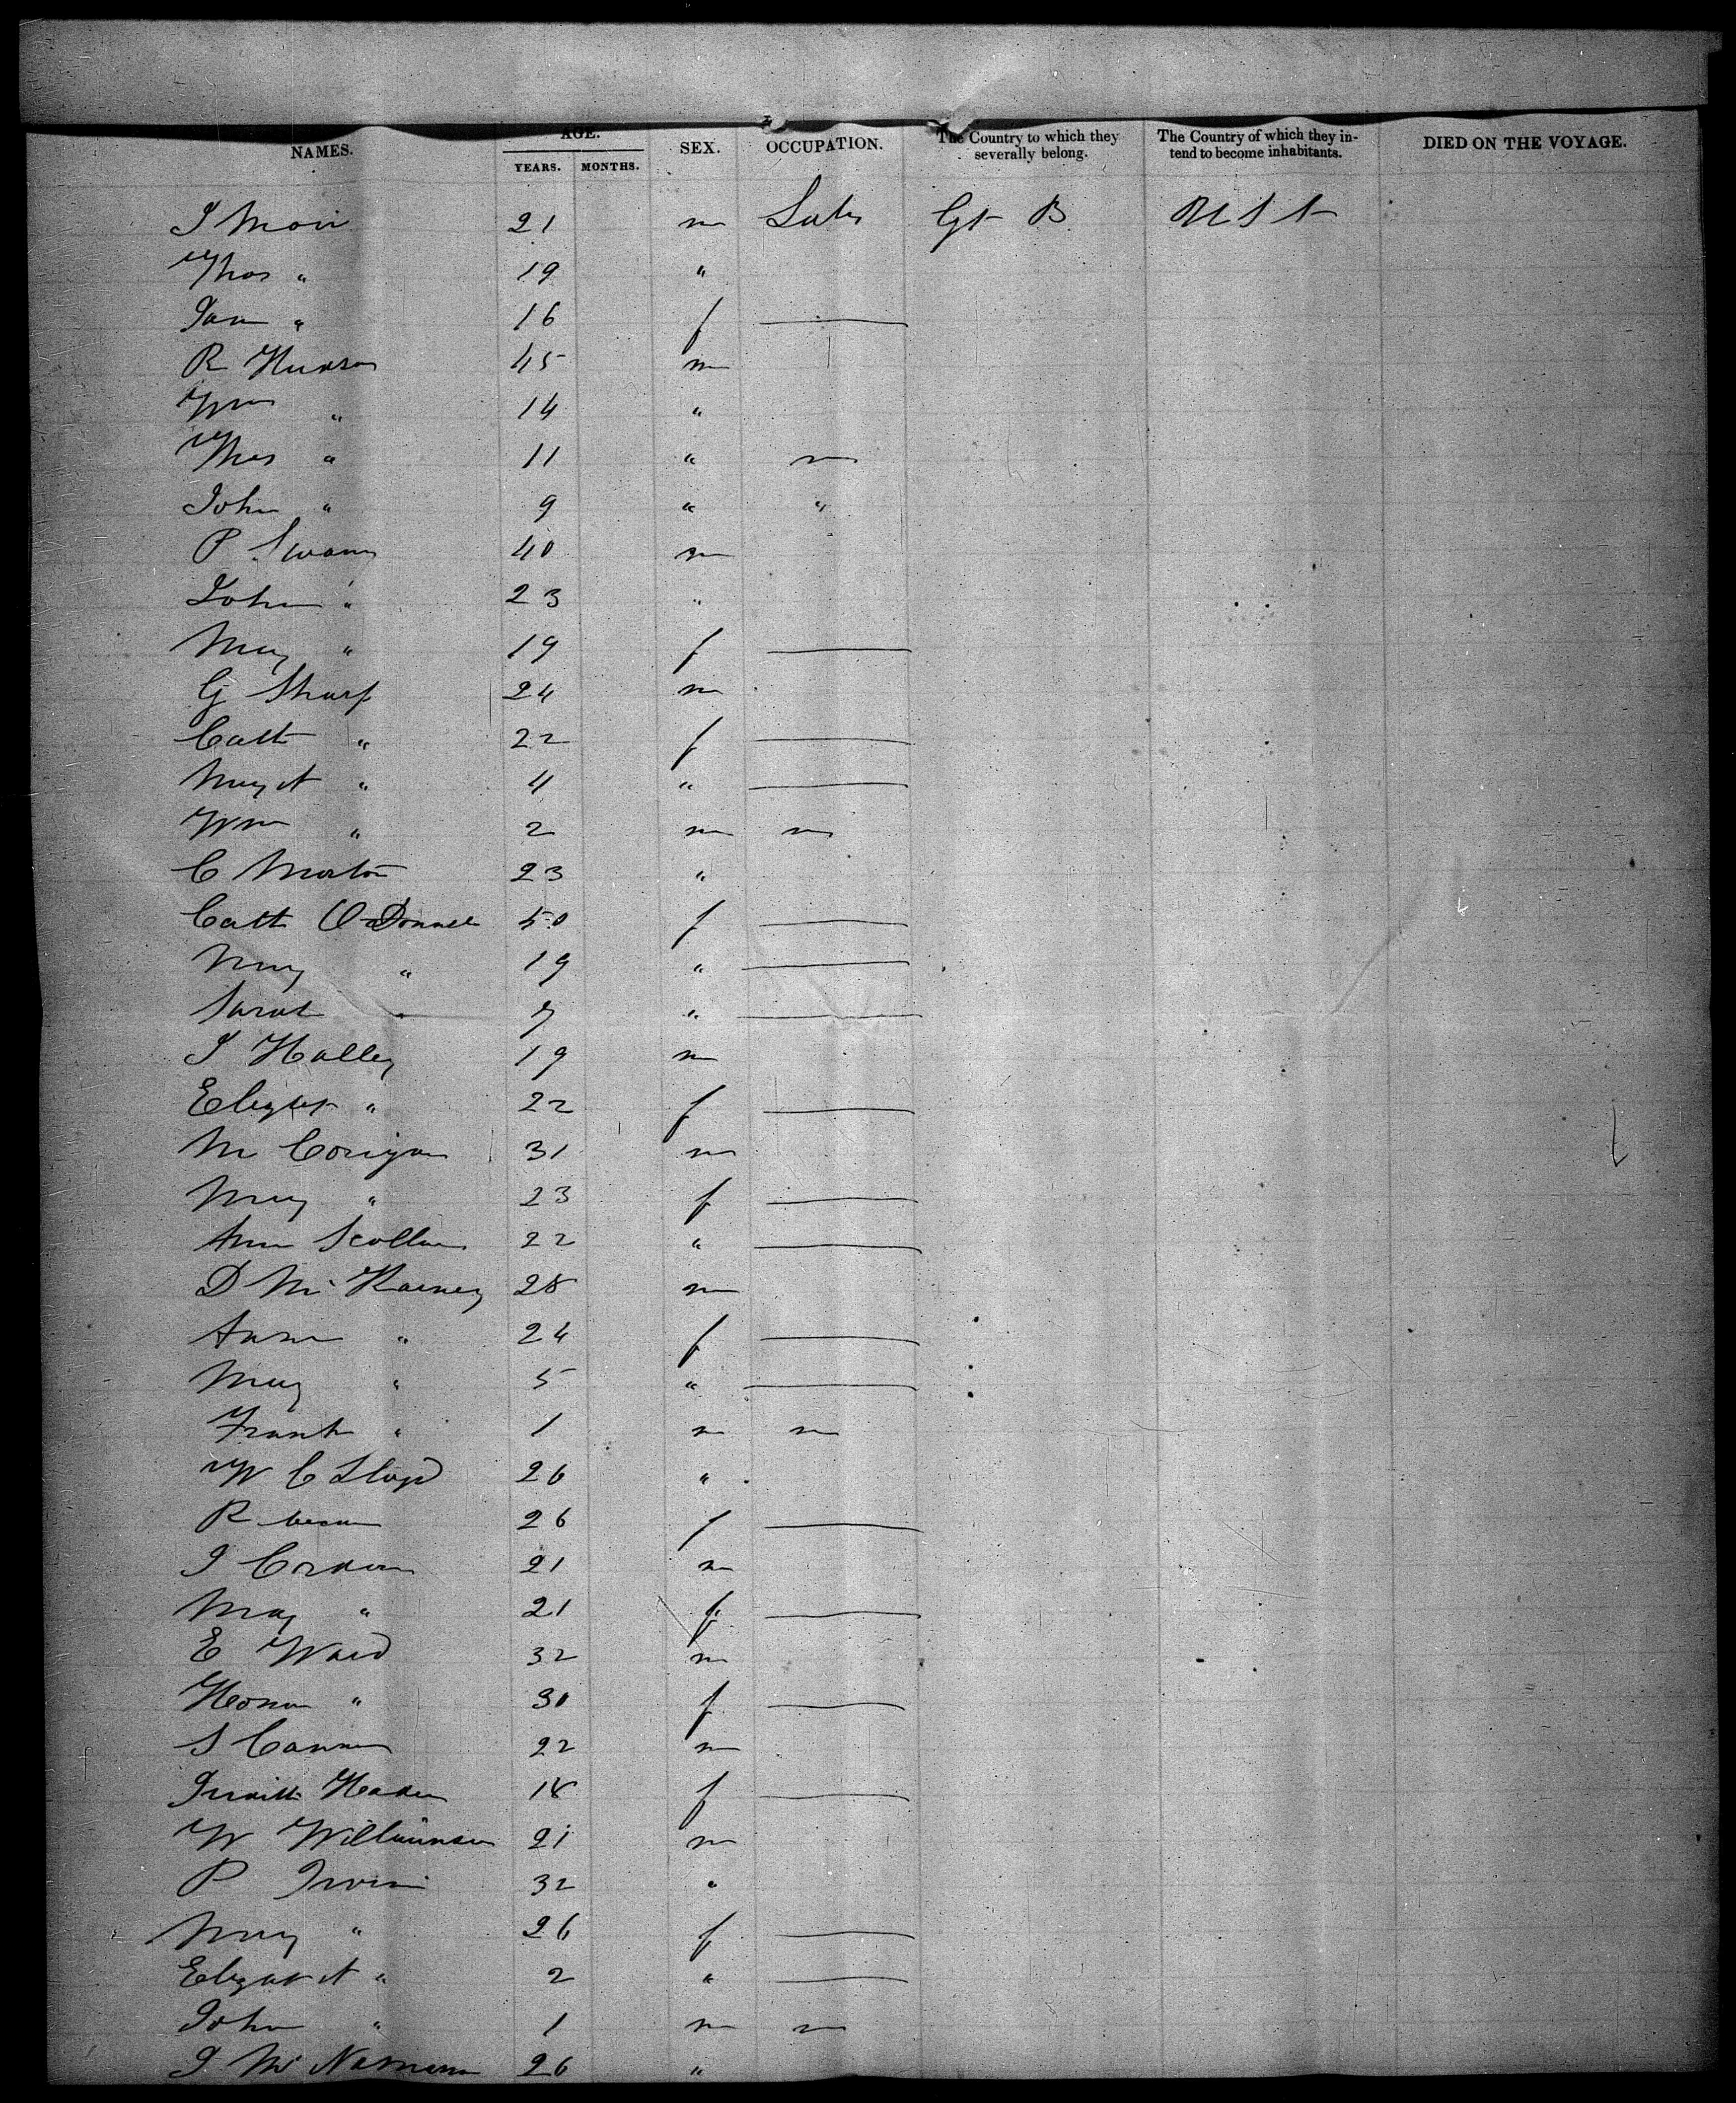 NAMES. AGE. YEARS. MONTHS. SEX. OCCUPATION. The Country to which they severally belong. The Country of which they intend to become inhabitants. DIED ON THE VOYAGE.
J Moir 21 m Labr Gt B U S A
Thos " 19 "
Jane " 16 f —
R Hudson 45 m
Wm " 14 "
Thos " 11 " —
John " 9 " "
P Swany 40 m
John " 23 "
Mary " 19 f —
G Sharp 24 m
Cath " 22 f —
Mary A " 4 " —
Wm " 2 m —
C Morton 23 "
Cath O'Donnell 50 f —
Mary " 19 " —
Sarah " 7 " —
J Halley 19 m
Elizabt " 22 f —
M Corigan 31 m
Mary " 23 f —
Ann Scollan 22 " —
D Mc 28 m
Anne " 24 f —
Mary " 5 " —
Frank " 1 m —
W C Lloyd 26 "
R 26 f —
J 21 m
Mary " 21 f —
E Ward 32 m
Honor " 30 f —
J Cannon 22 m
Judith 18 f —
W Williamson 21 m
P Irvin 32 "
Mary " 26 f —
Elizabt A " 2 " —
John " 1 m —
J McNamara 26 "